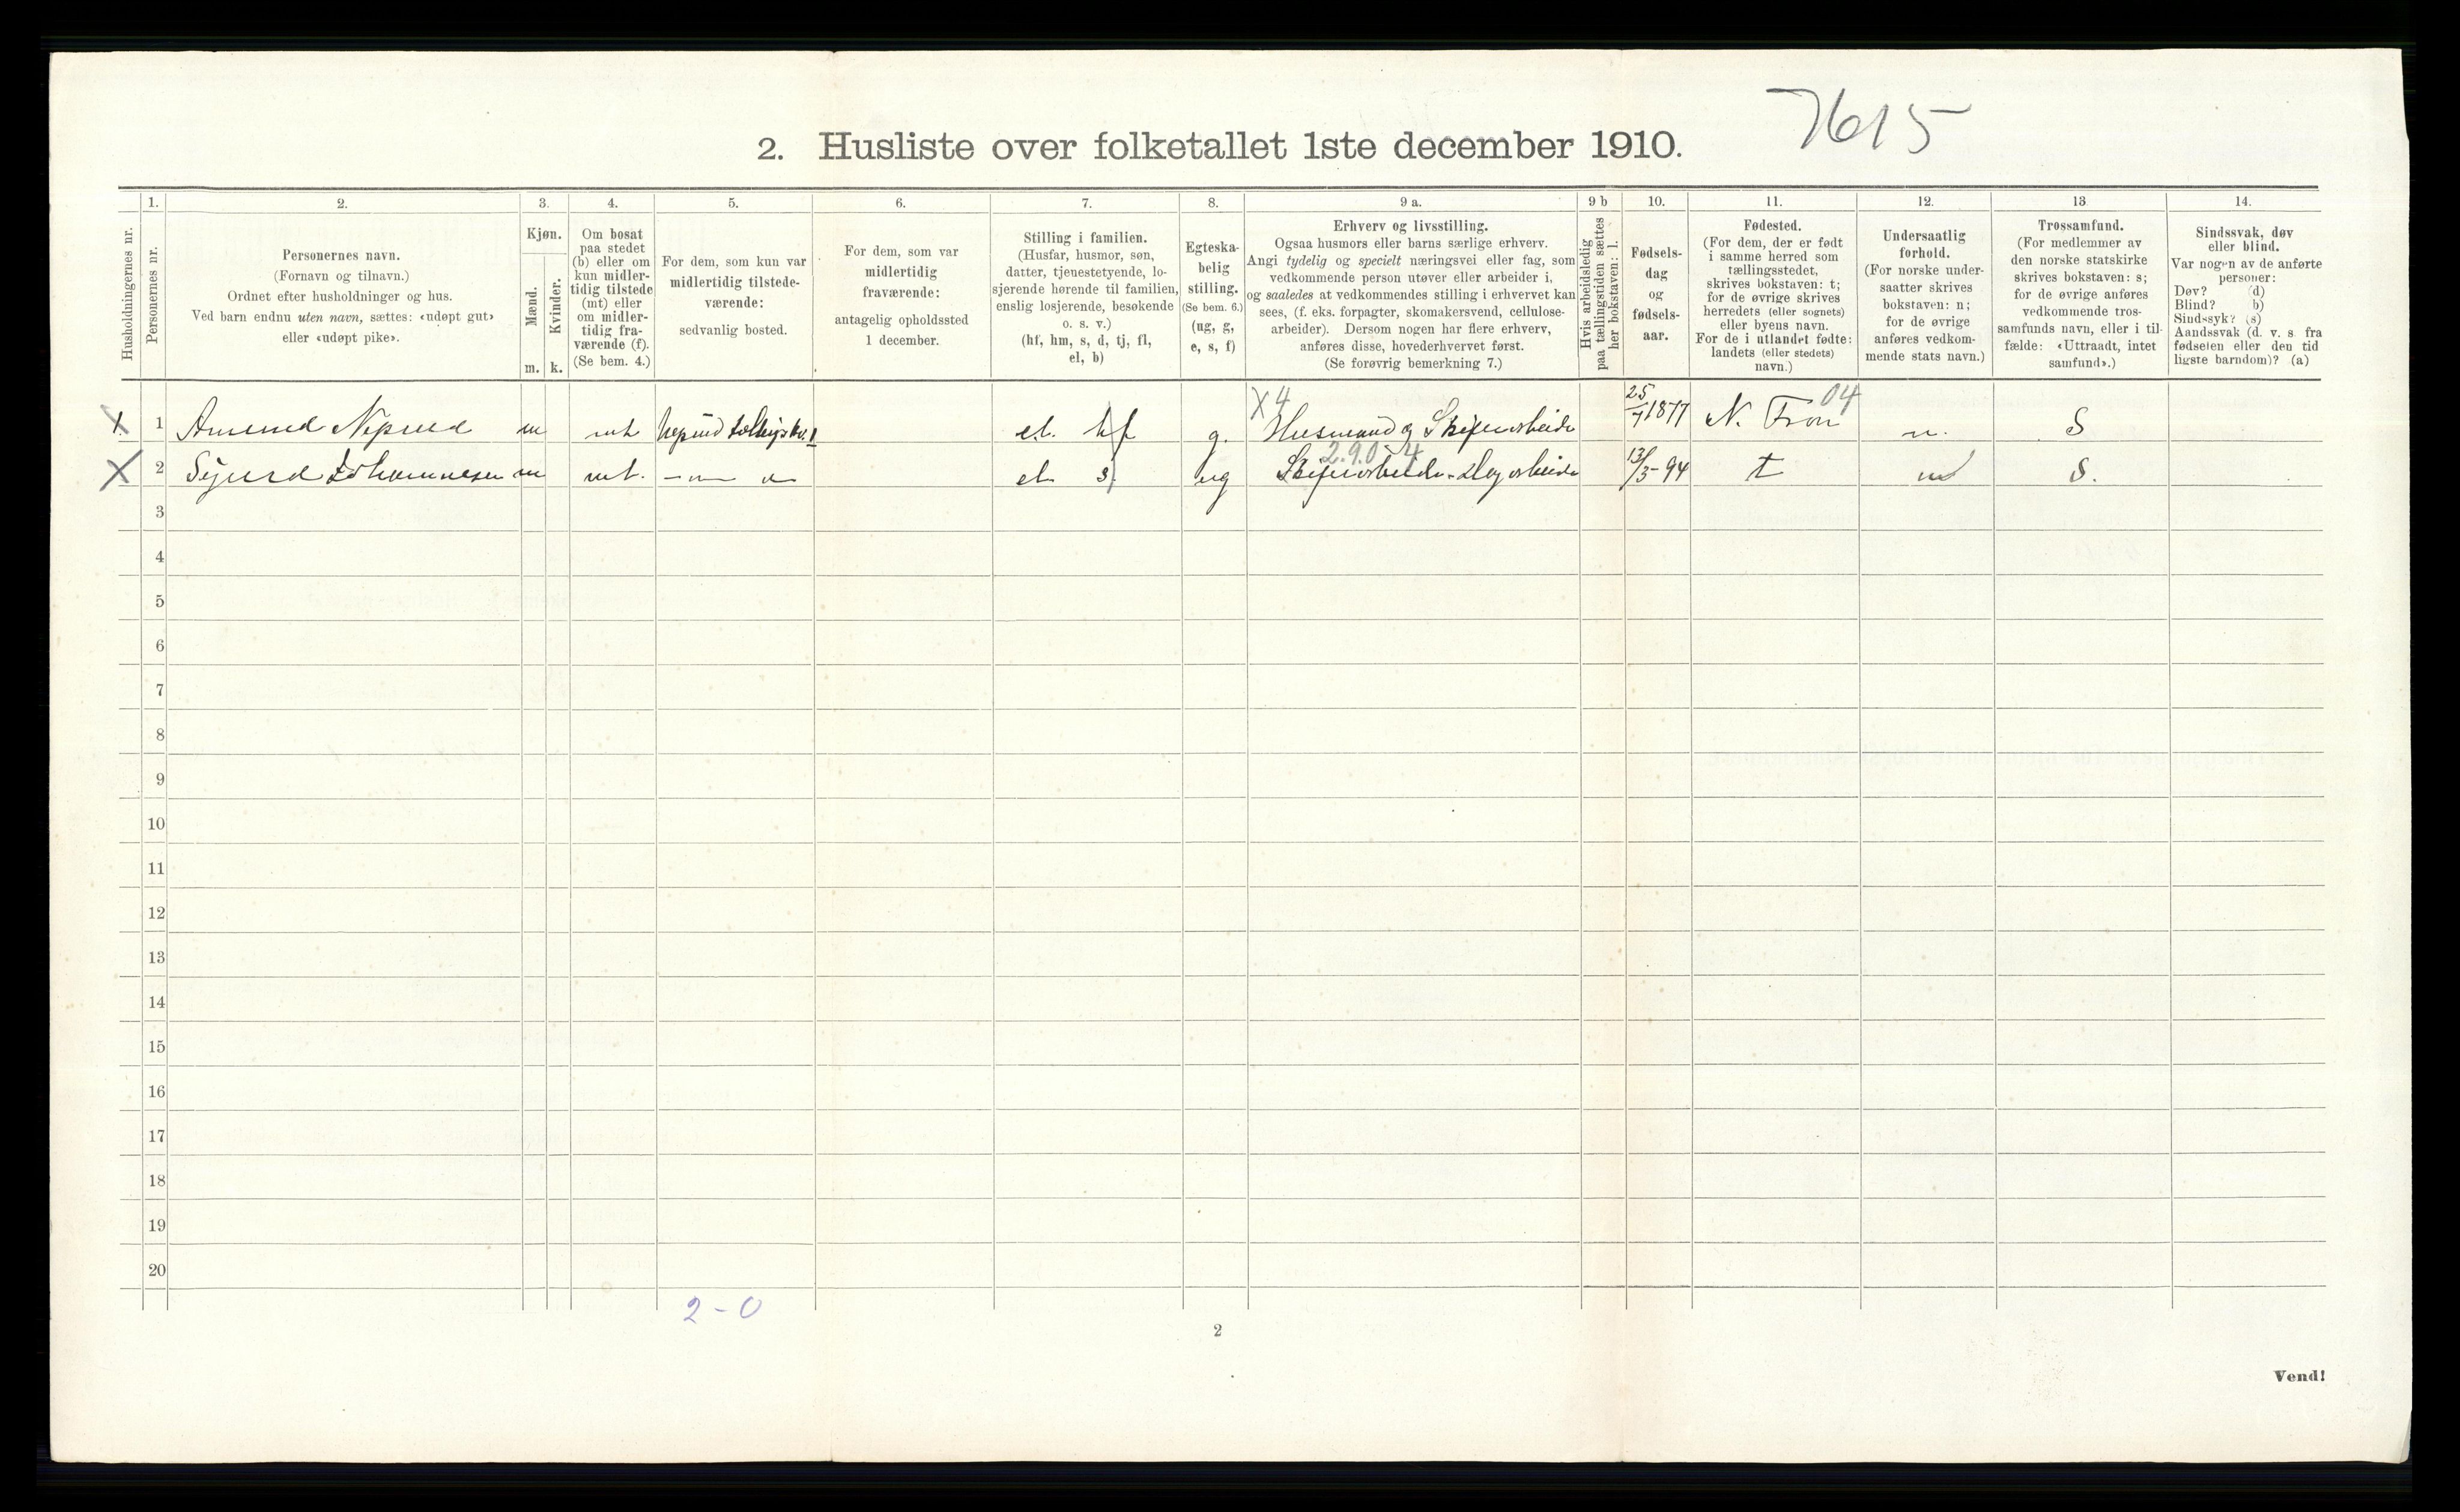 7615
2. Husliste over folketallet 1ste december 1910.
Husholdningernes nr.
1.
Personernes nr.
2.
Personernes navn.
(Fornavn og tilnavn.)
Ordnet efter husholdninger og hus.
Ved barn endnu uten navn, sættes: «udøpt gut»
eller «udøpt pike».
3.
Kjøn.
Mænd.
Kvinder.
m. k.
4.
Om bosat
paa stedet
(b) eller om
kun midler-
tidig tilstede
(mt) eller
om midler-
tidig fra-
værende (f).
(Se bem. 4.)
5.
For dem, som kun var
midlertidig tilstede-
værende:
sedvanlig bosted.
6.
For dem, som var
midlertidig
fraværende:
antagelig opholdssted
1 december.
7.
Stilling i familien.
(Husfar, husmor, søn,
datter, tjenestetyende, lo-
sjerende hørende til familien,
enslig losjerende, besøkende
o. s. v.)
(hf, hm, s, d, tj, fl,
el, b)
8.
Egteska-
belig
stilling.
(Se bem. 6.)
(ug, g,
e, s, f)
9 a.
Erhverv og livsstilling.
Ogsaa husmors eller barns særlige erhverv.
Angi tydelig og specielt næringsvei eller fag, som
vedkommende person utøver eller arbeider i,
og saaledes at vedkommendes stilling i erhvervet kan
sees, (f. eks. forpagter, skomakersvend, cellulose-
arbeider). Dersom nogen har flere erhverv,
anføres disse, hovederhvervet først.
(Se forøvrig bemerkning 7.)
9 b
Hvis arbeidsledig
paa tællingstiden sættes
her bokstaven: l.
10.
Fødsels-
dag
og
fødsels-
aar.
11.
Fødested.
(For dem, der er født
i samme herred som
tællingsstedet,
skrives bokstaven: t;
for de øvrige skrives
herredets (eller sognets)
eller byens navn.
For de i utlandet fødte:
landets (eller stedets)
navn.)
12.
Undersaatlig
forhold.
(For norske under-
saatter skrives
bokstaven: n;
for de øvrige
anføres vedkom-
mende stats navn.)
13
Trossamfund.
(For medlemmer av
den norske statskirke
skrives bokstaven: s;
for de øvrige anføres
vedkommende tros-
samfunds navn, eller i til-
fælde: «Uttraadt, intet
samfund».)
14.
Sindssvak, døv
eller blind.
Var nogen av de anførte
personer:
Døv? (d)
Blind? (b)
Sindssyk? (s)
Aandssvak (d. v. s. fra
fødselen eller den tid
ligste barndom)? (a)
X 4 04
X 1 Amund Nepud m mt el. hf g. Husmand og Skiferarbeide 25/7 1877 N. Fron n. S
2.9.0 4
X 2 Sigurd Johannesen m mt. el. s ug Skiferarbeide - Dagarbeide 13/3-94 t n S.
3
4
5
6
7
8
9
10
11
12
13
14
15
16
17
18
19
20
2 - 0
2
Vend!